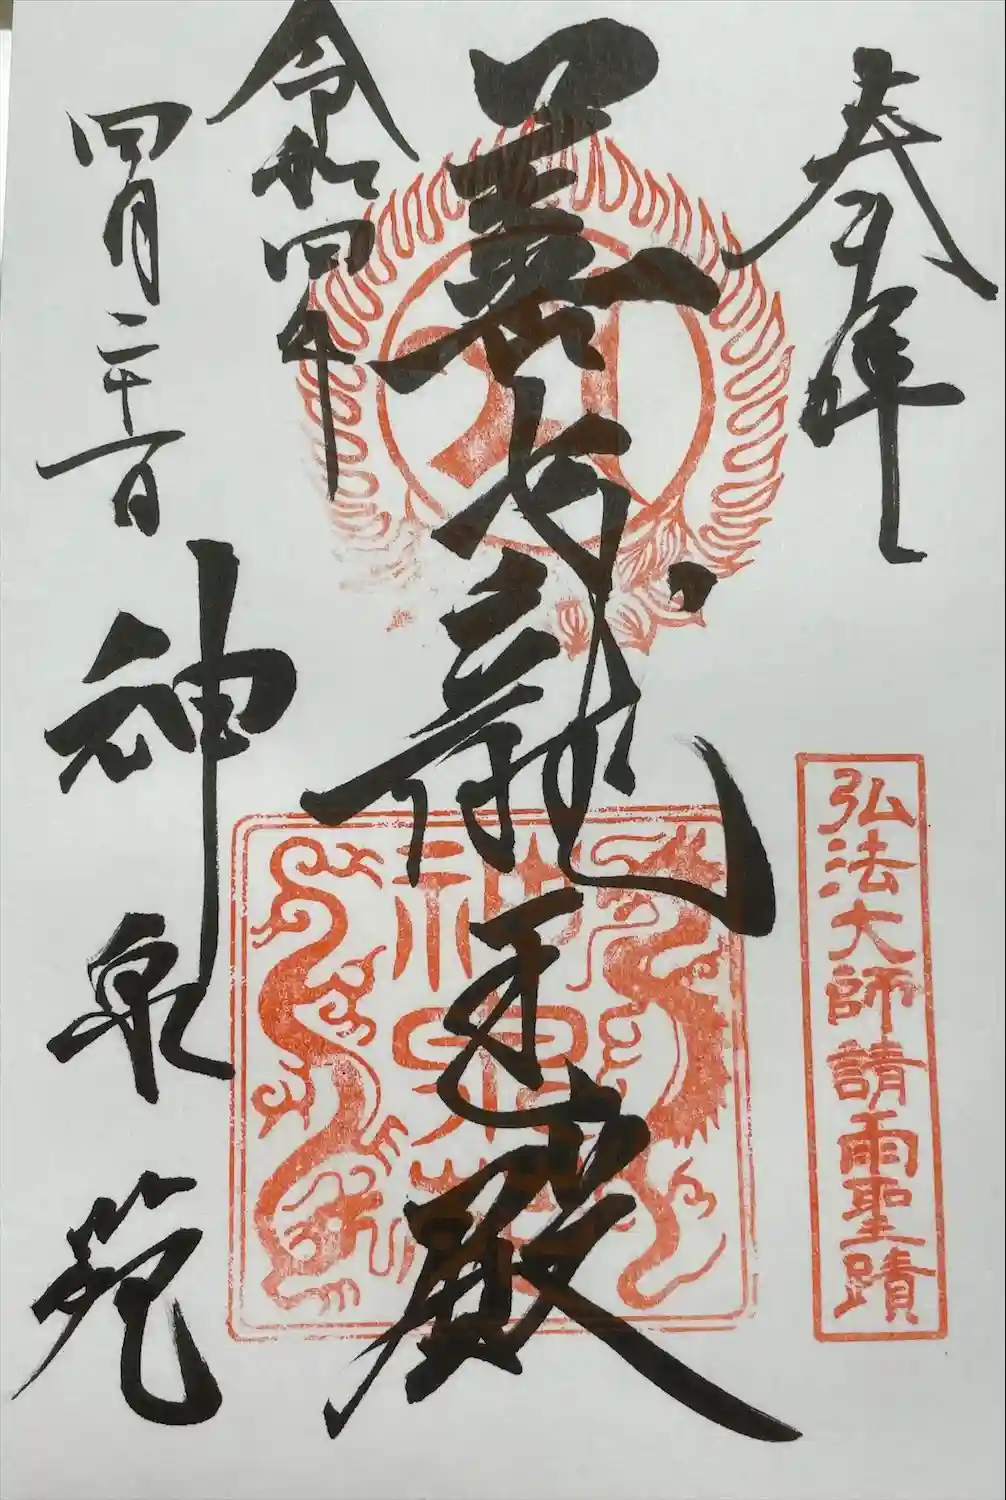 奉拝
弘法大師請雨聖蹟
善女龍王殿
神泉苑
令和四年
四月二十一日
神泉苑